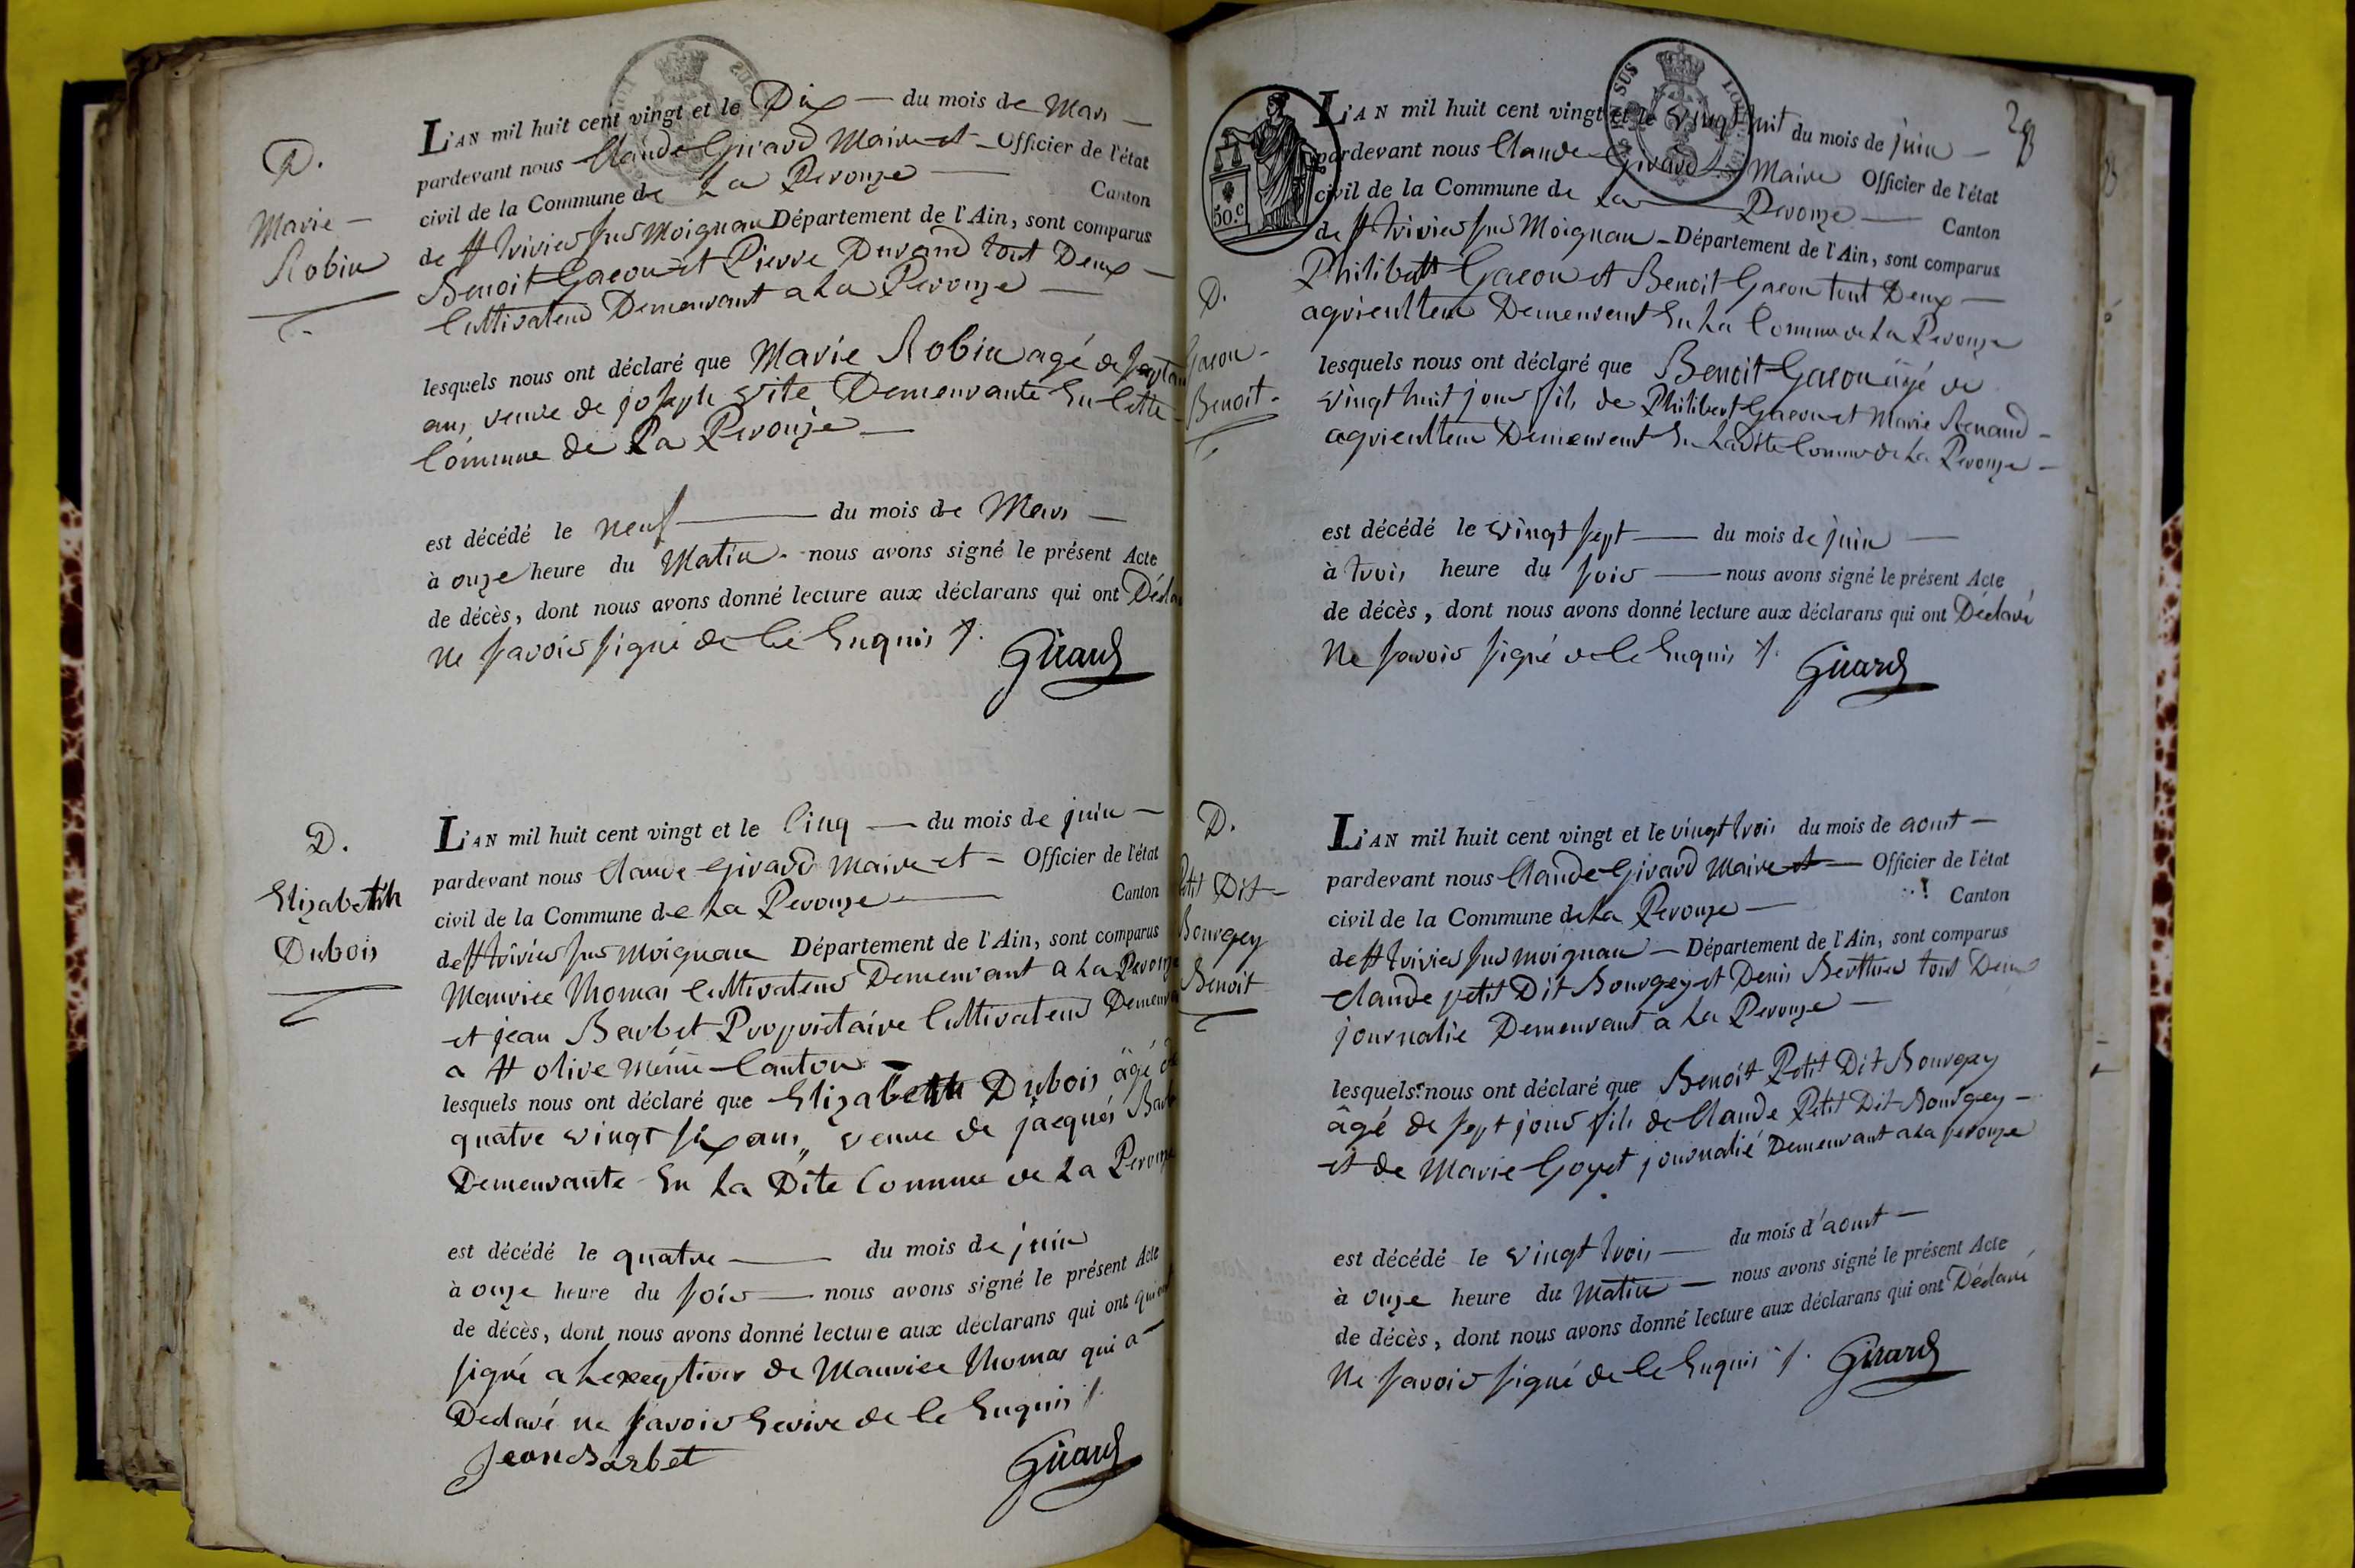 D.
Marie
Robin
L'AN mil huit cent vingt et le Dix du mois de Mars
pardevant nous Claude Girard Maire et Officier de l'état
civil de la Commune de La Perouze Canton
de St trivier sur Moignan Département de l'Ain, sont comparus
Benoit Gacon et Pierre Durand tout Deux
Cultivateur Demeurant a La Perouze
lesquels nous ont déclaré que Marie Robin agé de
ans veuve de joseph vite Demeurante En Cette
Commune de La Perouze
est décédé le neuf du mois de Mars
à onze heure du Matin nous avons signé le présent Acte
de décès, dont nous avons donné lecture aux déclarans qui ont
ne savoir signé de Ce Enquis ./.
Girard
D.
Elizabetth
Dubois
L'AN mil huit cent vingt et le Cinq du mois de juin
pardevant nous Claude Girard Maire et Officier de l'état
civil de la Commune de La Perouze Canton
de St trivier sur moignan Département de l'Ain, sont comparus
Maurice Thomas Cultivateur Demeurant a La Perouze
et jean Barbet Proprietaire Cultivateur
a St olive même Canton
lesquels nous ont déclaré que Elizabetth Dubois âgé de
quatre vingt six ans veuve de jacques
Demeurante En La Dite Commune de La Perouze
est décédé le quatre du mois de juin
à onze heure du soir nous avons signé le présent Acte
de décès, dont nous avons donné lecture aux déclarans qui ont qui ont
signé a Lexeeption de Maurice Thomas qui a
Declaré ne savoir Ecrire de Ce Enquis ./.
Jean Barbet
Girard
29
50.c
D.
Gacon
Benoit
L'AN mil huit cent vingt et le vingt huit du mois de juin
pardevant nous Claude Girard Maire Officier de l'état
civil de la Commune de La Perouze Canton
de St trivier sur Moignan Département de l'Ain, sont comparus
Philibert Gacon et Benoit Gacon tout Deux
agriculteur Demeurent En La Commune de La Perouze
lesquels nous ont déclaré que Benoit Gacon âgé de
vingt huit jour fils de Philibert Gacon et Marie Renaud
agriculteur Demeurent En Ladite Commune de La Perouze
est décédé le vingt sept du mois de juin
à trois heure du soir nous avons signé le présent Acte
de décès, dont nous avons donné lecture aux déclarans qui ont Déclaré
Ne savoir signé de Ce Enquis ./.
Girard
D.
Petit Dit
Bourgey
Benoit
L'AN mil huit cent vingt et le vingt trois du mois de aout
pardevant nous Claude Girard Maire et Officier de l'état
civil de la Commune de La Perouze Canton
de St trivier sur moignan Département de l'Ain, sont comparus
claude petit Dit Bourgey et Denis Berthier tout Deux
journalié Demeurant a La Perouze
lesquels nous ont déclaré que Benoit Petit Dit Bourgey
âgé de sept jour fils de Claude Petit Dit Bourgey
et de Marie Goyet journalié Demeurant a La perouze
est décédé le vingt trois du mois d'aout
à onze heure du Matin nous avons signé le présent Acte
de décès, dont nous avons donné lecture aux déclarans qui ont Déclaré
Ne savoir signé de Ce Enquis ./.
Girard